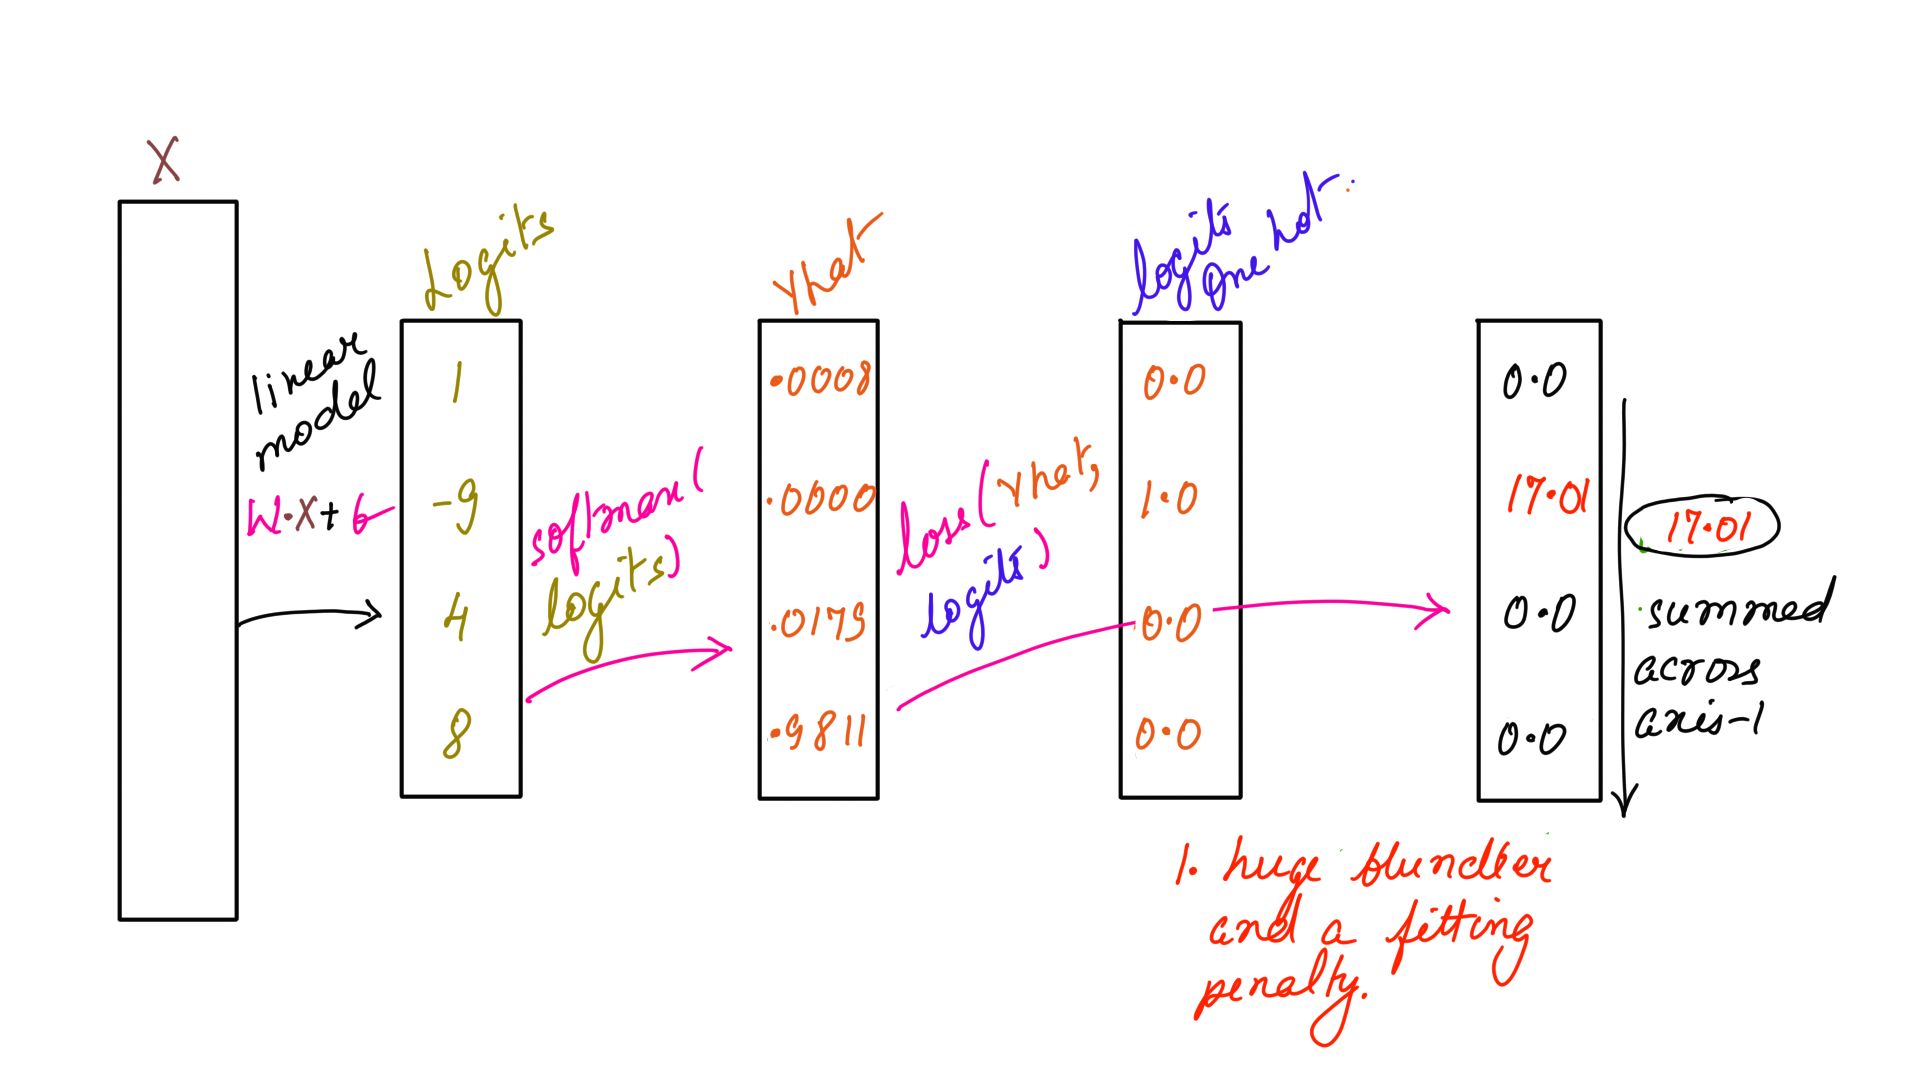 X
linear
model
W.X+b
Logits
1
-9
4
8
softmax(
logits)
yhat
.0008
.0000
.0179
.9811
loss(yhat,
logits)
logits
one hot.
0.0
1.0
0.0
0.0
0.0
17.01
0.0
0.0
17.01
summed
across
axis-1
1. huge blunder
and a fitting
penalty.